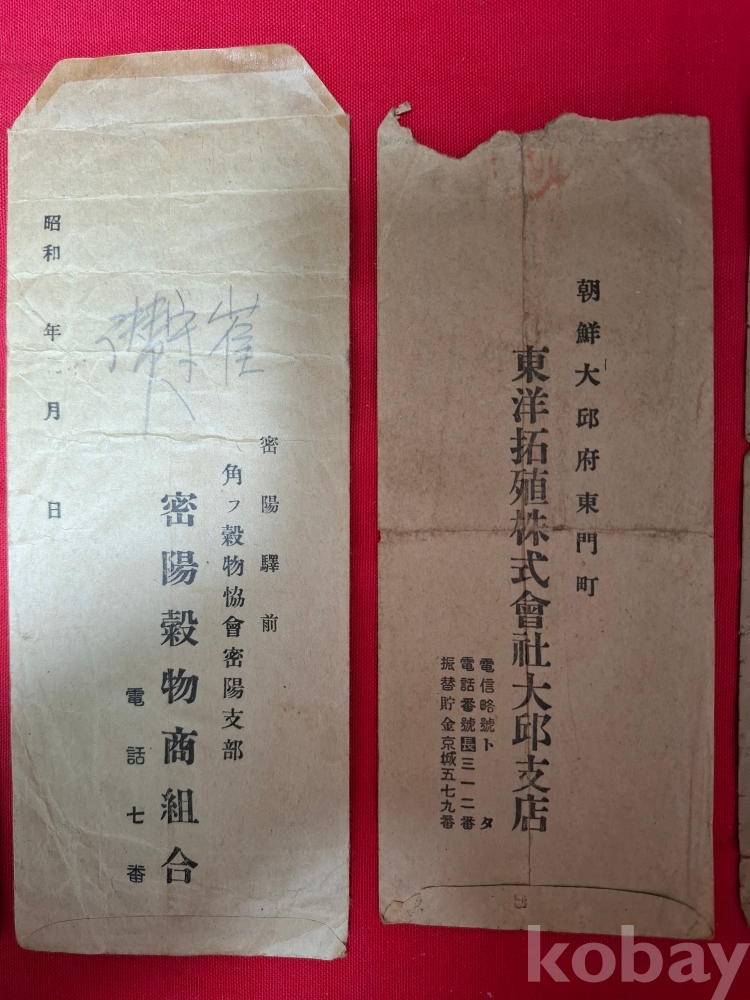 密陽驛前
角フ穀物協會密陽支部
密陽穀物商組合
電話七番
昭和 年 月 日
朝鮮大邱府東門町
東洋拓殖株式會社大邱支店
電信略號トタ
電話番號長三一二番
振替貯金京城五七九番
kobay